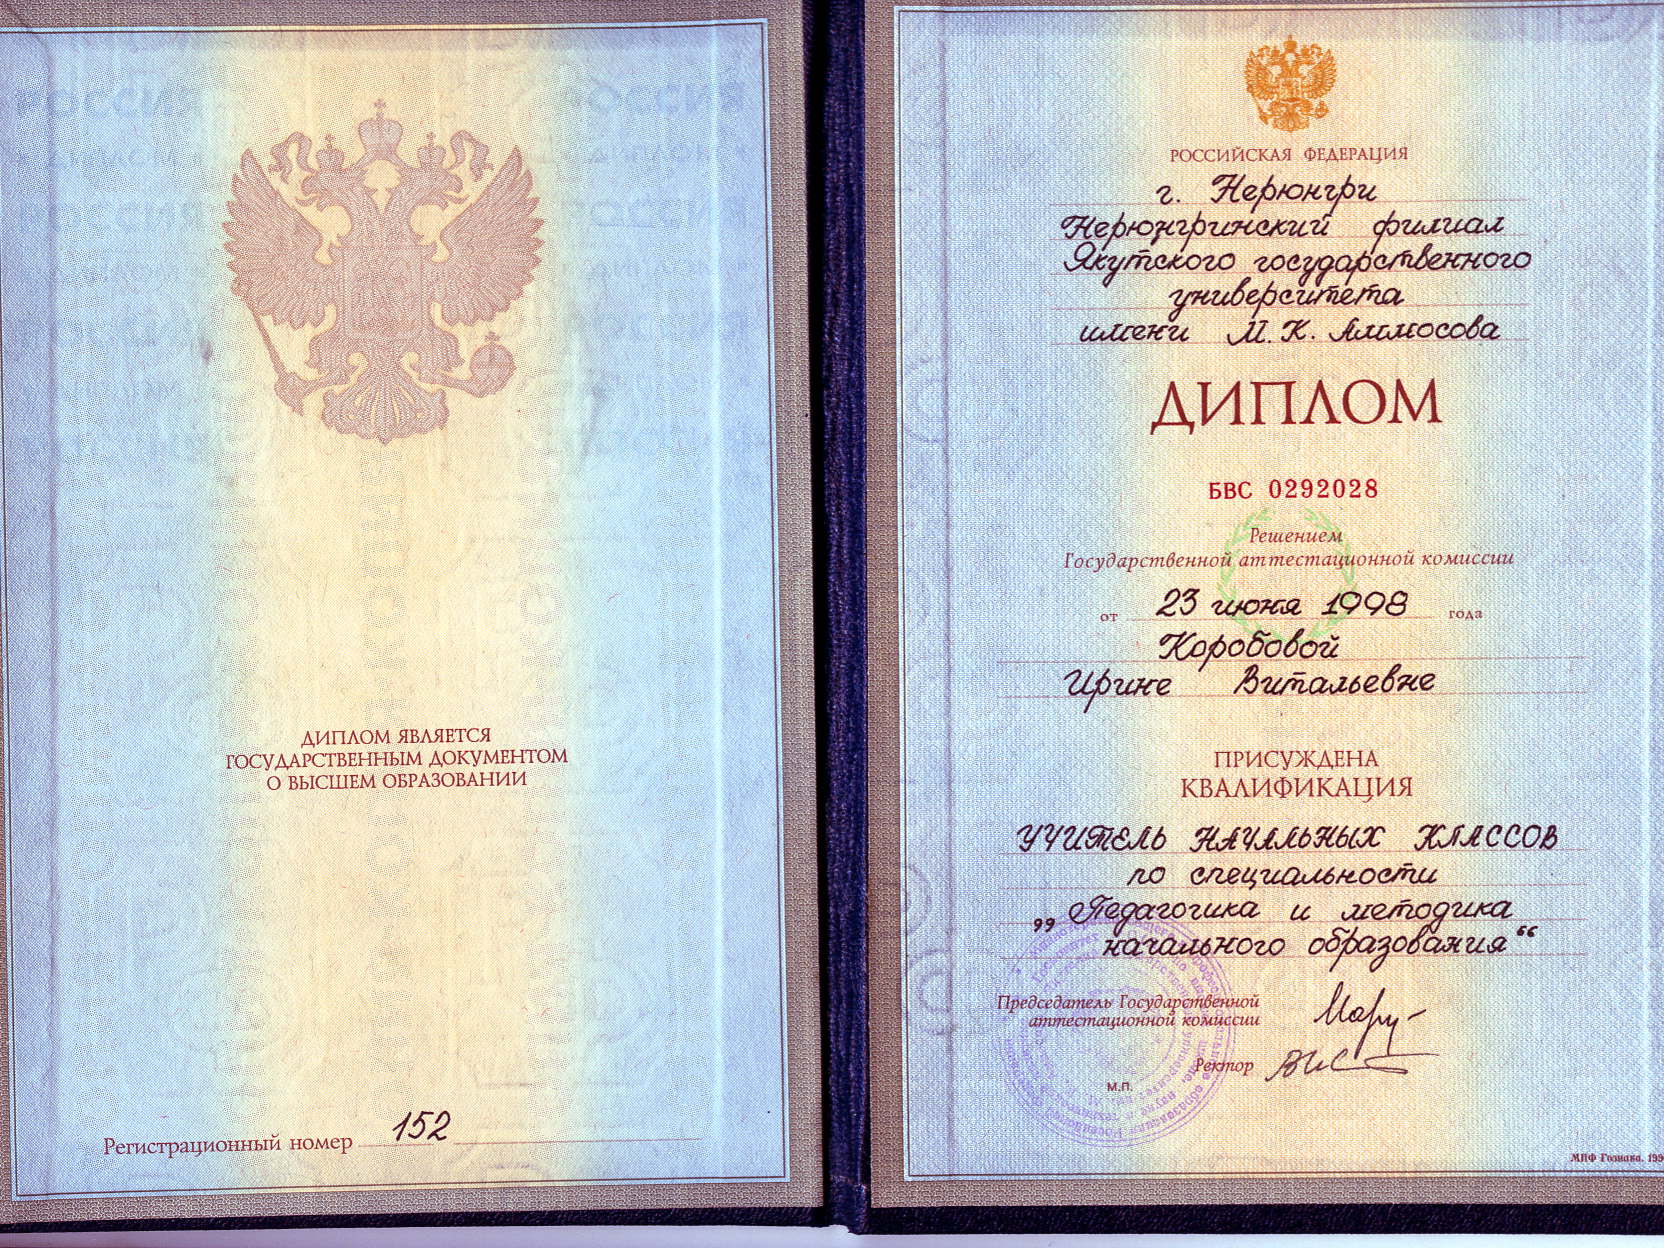 ДИПЛОМ ЯВЛЯЕТСЯ
ГОСУДАРСТВЕННЫМ ДОКУМЕНТОМ
О ВЫСШЕМ ОБРАЗОВАНИИ
Регистрационный номер 152
РОССИЙСКАЯ ФЕДЕРАЦИЯ
г. Нерюнгри
Нерюнгринский филиал
Якутского государственного
университета
имени М.К. Аммосова
ДИПЛОМ
БВС 0292028
Решением
Государственной аттестационной комиссии
от 23 июня 1998 года
Коробовой
Ирине Витальевне
ПРИСУЖДЕНА
КВАЛИФИКАЦИЯ
УЧИТЕЛЬ НАЧАЛЬНЫХ КЛАССОВ
по специальности
„Педагогика и методика
начального образования“
Председатель Государственной
аттестационной комиссии
Ректор
М.П.
МПФ Гознака.